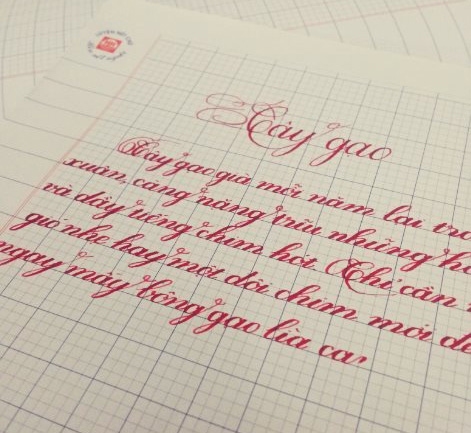 Cây gạo
Cây gạo già mỗi năm lại trở
xuân, cành nặng trĩu những
và đầy tiếng chim hót. Chỉ cần
gió nhẹ hay một đôi chim mới
ngay mấy bông gạo lìa cành